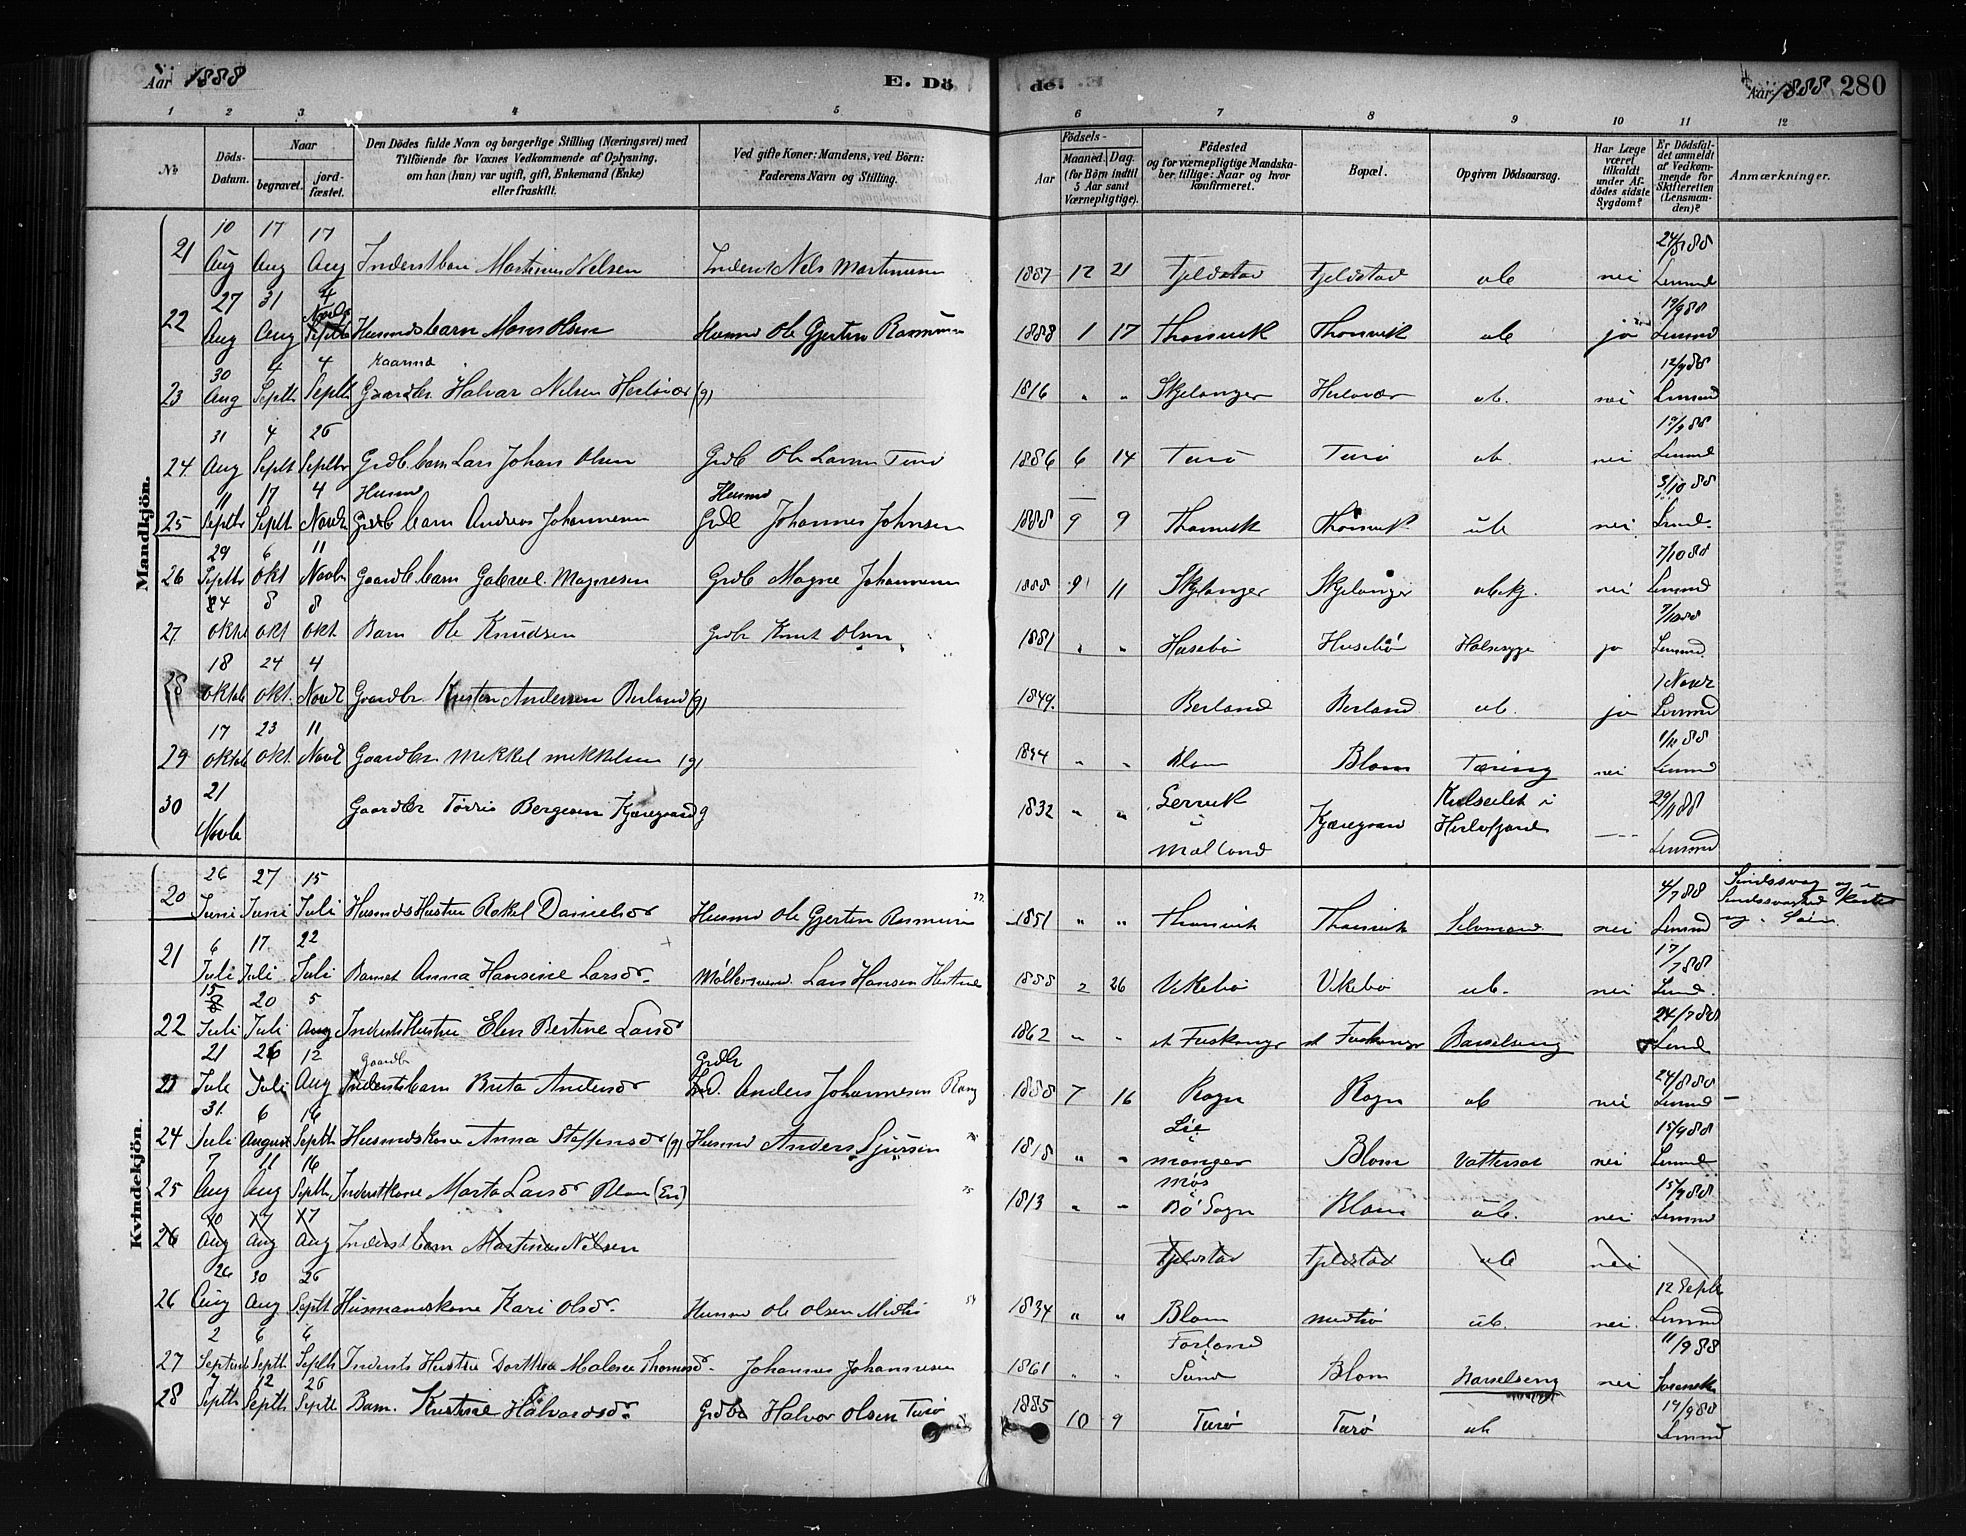 Aar 1888 E. Dö
de. Aar 1888 280
1 2 3 4 5 6 7 8 9 10 11 12
No
Döds-Datum.
Naar
begravet.
jord-fæstet.
Den Dödes fulde Navn og borgerlige Stilling (Næringsvei) med
Tilföiende for Voxnes Vedkommende af Oplysning,
om han (han) var ugift, gift, Enkemand (Enke)
eller fraskilt.
Ved gifte Koner: Mandens, ved Börn:
Faderens Navn og Stilling.
Födsels-
Aar
Maaned. Dag.
(for Börn indtil
5 Aar samt
Værnepligtige).
Födested
og for værnepligtige Mandska-
ber tillige: Naar og hvor
konfirmeret.
Bopæl.
Opgiven Dödsaarsag.
Har Læge
været
tilkaldt
under Af-
dödes sidste
Sygdom?
Er Dödsfal-
det anmeldt
af Vedkom-
mende for
Skifteretten
(Lensman-
den)?
Anmærkninger.
Mandkjön.
21 10 Aug 17 Aug 17 Aug Inderstbarn Martinus Nelsen Inderst Nels Martinusen 1887 12 21 Fjeldstad Fjeldstad ub nei 24/8 88 Lensmd
22 27 Aug 31 Aug 4 Novbr Husmdsbarn Mons Olsen Husmd Ole Gjertin Rasmusen 1888 1 17 Thorsvik Thorsvik ub jo 12/9 88 Lensmd
23 30 Aug 4 Septb 4 Septb Kaarmd Gaardbr Halvar Nelsen Herløvær (g) 1816 " " Skjelanger Herløvær ub. nei 12/9 88 Lensmd
24 31 Aug 4 Septb 26 Septbr Grdb. barn Lars Johan Olsen Grdb Ole Larsen Turø 1886 6 14 Turø Turø ub. nei 12/9 88 Lensmd
25 11 Septbr 17 Septb 4 Novbr Husmd Grdb barn Andreas Johannesen Husmd Grdb Johannes Johnsen 1888 9 9 Thorsvik Thorsvik ub nei 3/10 88 Lensmd
26 29 Septbr 6 Okt 11 Novbr Gaardb barn Gabriel Magnesen Grdb Magne Johannesen 1888 9 11 Skjelanger Skjelanger ubekj. nei 7/10 88 Lensmd
27 4 Oktb 8 Okt 8 Okt Barn Ole Knudsen Grdbr Knut Olsen 1881 " " Husebø Husebø Halssyge jo 7/10 88 Lensmd
28 18 Oktob 24 Okt. 4 Novbr Gaardbr. Kristen Andersen Berland (g) 1849. Berland Berland ub. jo 1 Novbr Lensmd
29 17 Oktob 23 Okt. 11 Novb Gaardbr Mikkel Mikkelsen (g) 1844 " " Blom Blom Tæring nei 1/11 88 Lensmd
30 21 Novb Gaardbr Tørris Bergesen Kjæregaard g 1832 " " Lervik i Mælland Kjæregaard Kulseilet i Herløfjorden --- 29/11 88 Lensmd
Kvindekjön.
20 26 Juni 27 Juni 15 Juli Husmds Hustru Rakel Danielsdr Husmd Ole Gjertin Rasmusen 1851 " " Thorsvik Thorsvik Selvmord nei 4/7 88 Lensmd Sindssvag og i Sindssvaghed kastet sig i Søen
21 6 Juli 17 Juli 22 Juli Barnet Anna Hansine Larsdr. Møllersvend. Lars Hansen Hestnes 1888 2 26 Vikebø Vikebø ub. nei 17/7 88 Lensmd
22 15 Juli 20 Juli 5 Aug Inderst Hustru Elen Bertine Larsdr 1862 " " Barselseng 24/7 88 Lensmd
23 21 Juli 26 Juli 12 Aug Gaardb Inderstsbarn Brita Andersdr Grdbr Ind. Anders Johannesen Rogn 1888 7 16 Rogn Rogn ub nei 24/8 88 Lensmd
24 31. Juli 6 August 16 Septb Husmdskone Anna Steffensdr (g) Husmd Anders Sjursen 1818 " " Lie Manger Blom Vattersot nei 15/9 88 Lensmd
25 7 Aug 11 Aug 16 Septb Inderstkone Marta Larsdr Blom (En) 1813 " " Møs Bø Sogn Blom ub. nei 15/9 88 Lensmd
26 10 Aug 17 Aug 17 Aug Inderst barn Martinus Nelsen Fjeldstad Fjeldstad ub nei
26 26 Aug 30 Aug 26 Septb Husmandskone Kari Olsdr. Husmd Ole Olsen Midtø 1834 " " Blom Midtø ub. nei. 12 Septb Lensmd
27 2 Septemb 6 Septb 6 Septb Inderst Hustru Dorthea Malene Thomasdr. Johannes Johannesen 1861 " " Forland i Sund Blom Barselseng nei 11/9 88
28 7 Septb 12 Septb 26 Septb Barn. Kristine Halvardsdr. Grdbr Halvor Olsen Turø 1885 10 9 Turø Turø ub 14/9 88 Lensmd